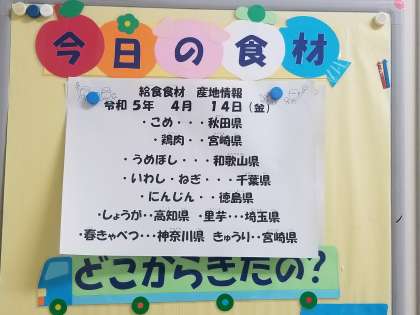 今日の食材
給食食材 産地情報
令和5年 4月 14日(金)
・こめ・・・秋田県
・鶏肉・・宮崎県
・うめぼし・・・和歌山県
・いわし・ねぎ・・・千葉県
・にんじん・・徳島県
・しょうが・・高知県 ・里芋・・・埼玉県
・春きゃべつ・・・神奈川県 きゅうり・・宮崎県
どこからきたの?